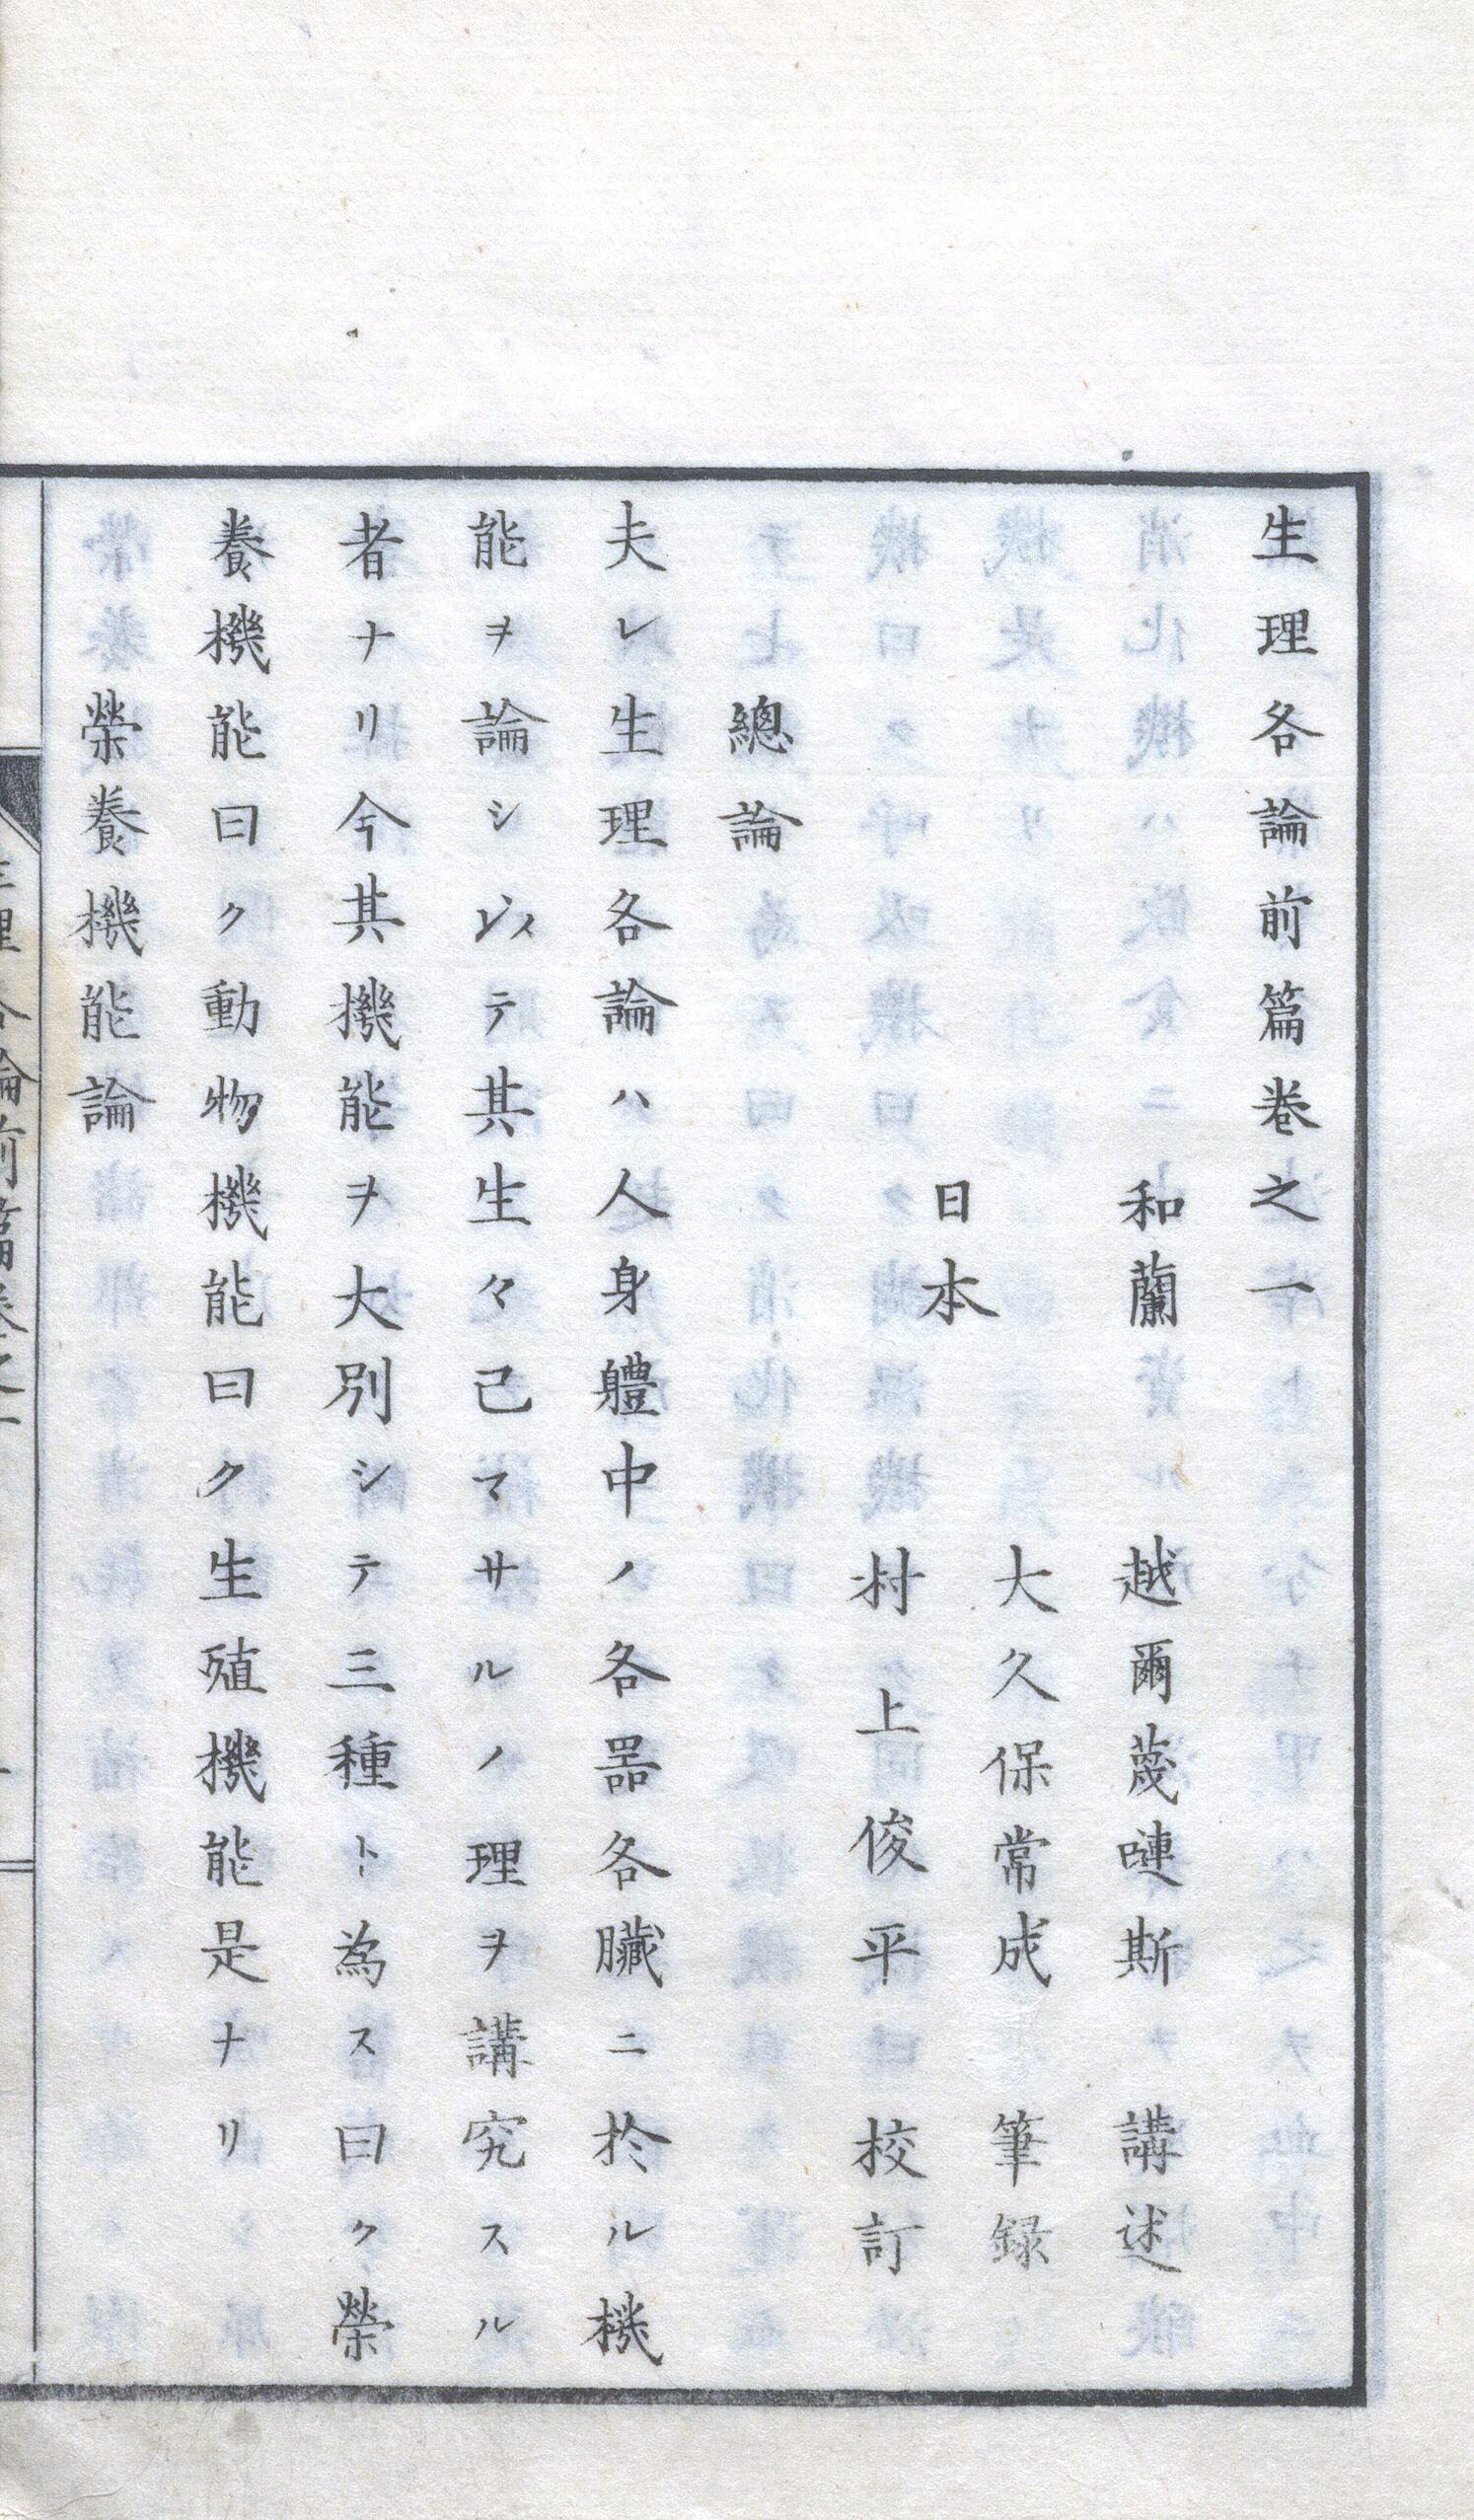 生理各論前篇卷之一
和蘭　越爾蔑嗹斯　講述
日本　大久保常成　筆録
村上俊平　校訂
總論
夫レ生理各論ハ人身軆中ノ各器各臓ニ於ル機
能ヲ論シ以テ其生々己マサルノ理ヲ講究スル
者ナリ今其機能ヲ大別シテ三種ト為ス曰ク榮
養機能曰ク動物機能曰ク生殖機能是ナリ
榮養機能論